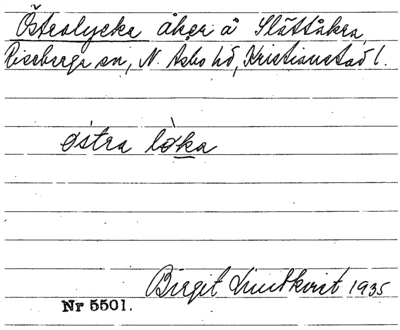 Österslycka åker å Slättåkra,
Riseberga sn, N. Asbo hd, Kristianstad l.
østra lòka
Birgit Lindkvist 1935
Nr 5501.